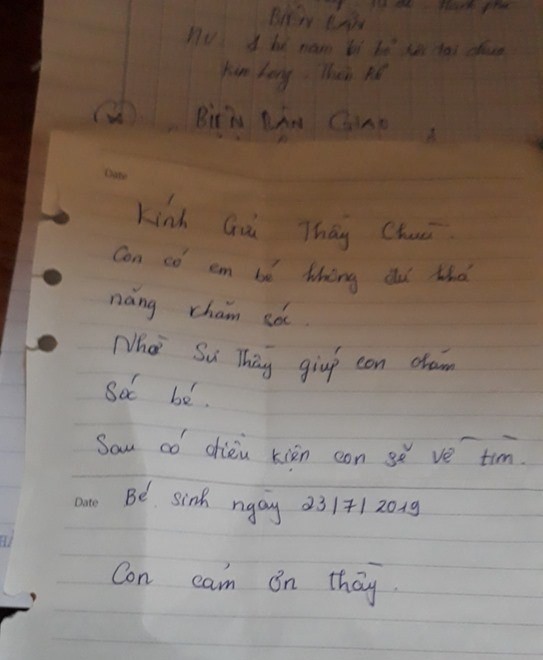 BIÊN BẢN
1 bé nam bị bỏ rơi tại chùa
Kim Long. Thôn
BIÊN BẢN GIAO
Date
Kính Gửi Thầy Chùa.
Con có em bé không đủ khả
năng chăm sóc.
Nhờ Sư Thầy giúp con chăm
Sóc bé.
Sau có điều kiện con sẽ về tìm.
Date Bé sinh ngày 23/7/2019
Con cảm ơn thầy.